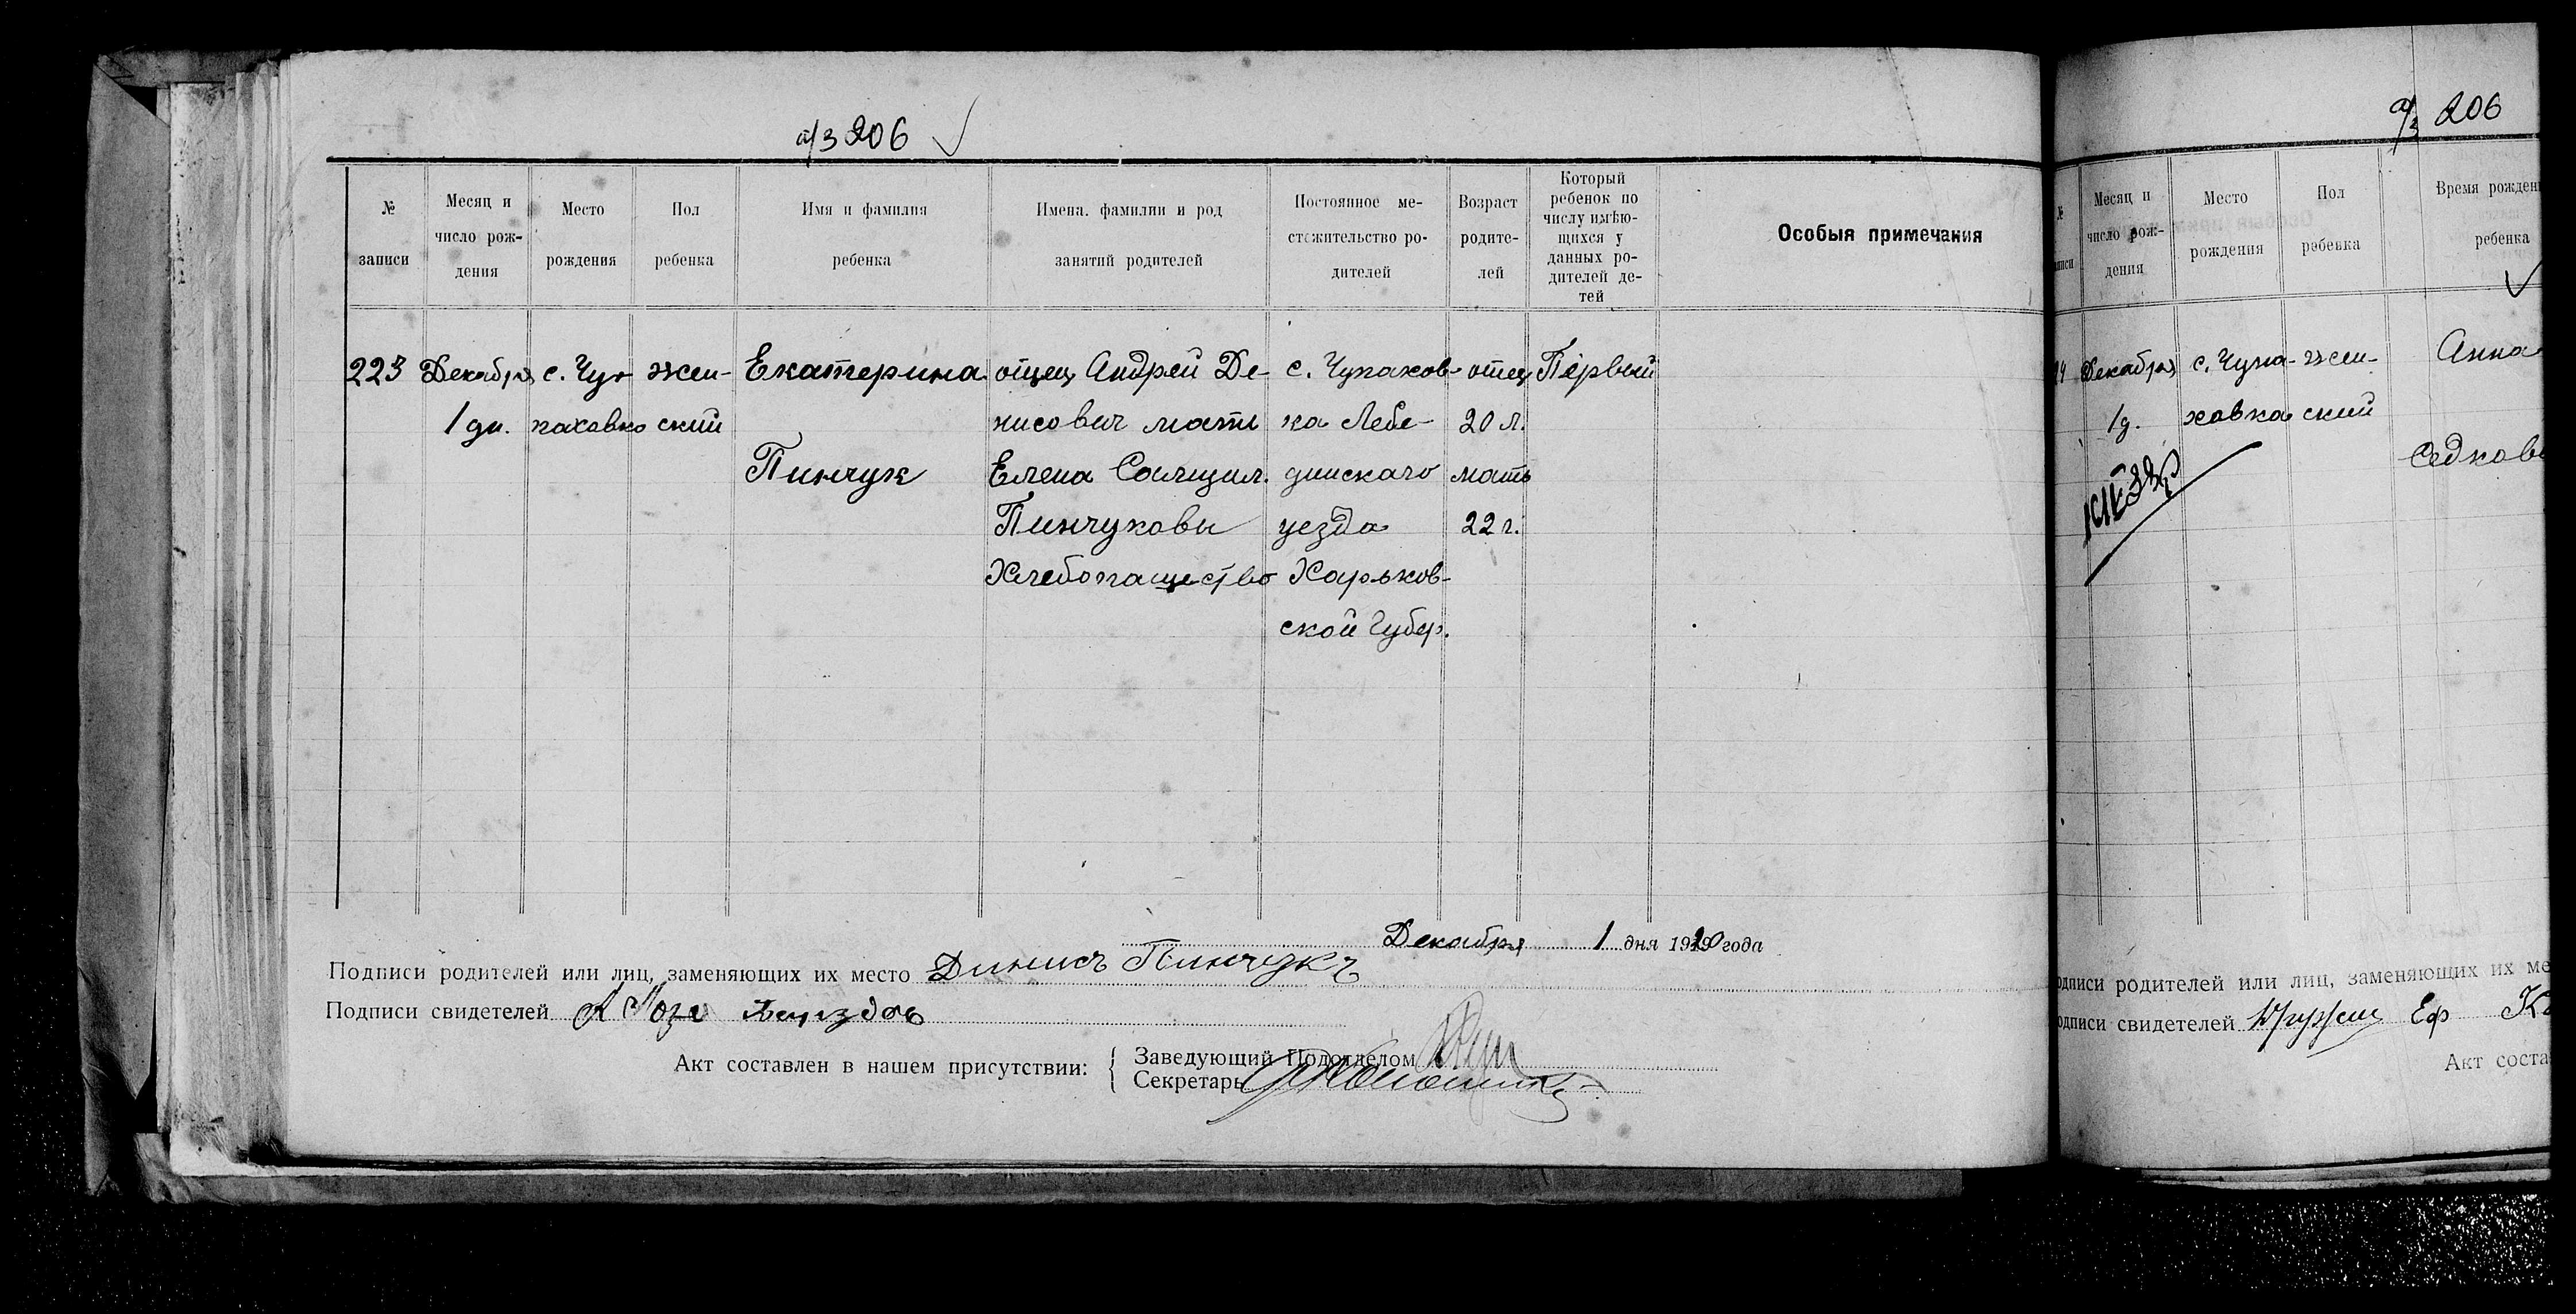 а/з 206
№ записи
Месяц и число рождения
Место рождения
Пол ребенка
Имя и фамилия ребенка
Имена. фамилии и род занятий родителей
Постоянное местожительство родителей
Возраст родителей
Который ребенок по числу имѣющихся у данных родителей детей
Особыя примечания
223 Декабря с. Чу- жен- Екатерина отец Андрей Де- с. Чупахов- отец Первый
1 дн. паховка ский нисович мать ка Лебе- 20 л.
Пинчук Елена динскаго мать
Пинчуковы уезда 22 г.
Хлебопашество Харьков-
ской Губер.
Декабря 1 дня 1920 года
Подписи родителей или лиц, заменяющих их место Динисъ Пинчукъ
Подписи свидетелей А Лоза
Акт составлен в нашем присутствии:
Заведующий Подотделом
Секретарь
а/з 206
Месяц и число рождения
Место рождения
Пол ребенка
Время рожден
ребенка
24 Декабря с. Чупа- жен- Анна
1 д. ховка ский
Седков
одписи родителей или лиц, заменяющих их ме
одписи свидетелей Еф
Акт соста